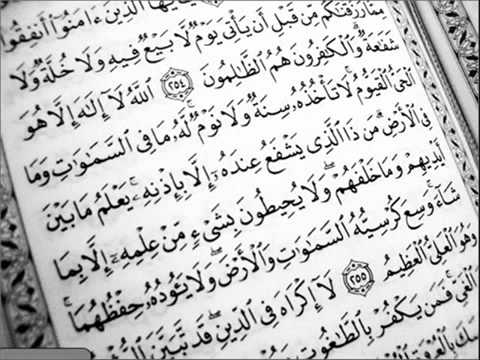 ٱلَّذِينَ ءَامَنُوٓا۟ أَنفِقُوا۟
مِمَّا رَزَقْنَٰكُم مِّن قَبْلِ أَن يَأْتِىَ يَوْمٌ لَّا بَيْعٌ فِيهِ وَلَا خُلَّةٌ وَلَا
شَفَٰعَةٌ وَٱلْكَٰفِرُونَ هُمُ ٱلظَّٰلِمُونَ ٢٥٤ ٱللَّهُ لَآ إِلَٰهَ إِلَّا هُوَ
ٱلْحَىُّ ٱلْقَيُّومُ لَا تَأْخُذُهُۥ سِنَةٌ وَلَا نَوْمٌ لَّهُۥ مَا فِى ٱلسَّمَٰوَٰتِ وَمَا
فِى ٱلْأَرْضِ مَن ذَا ٱلَّذِى يَشْفَعُ عِندَهُۥٓ إِلَّا بِإِذْنِهِۦ يَعْلَمُ مَا بَيْنَ
أَيْدِيهِمْ وَمَا خَلْفَهُمْ وَلَا يُحِيطُونَ بِشَىْءٍ مِّنْ عِلْمِهِۦٓ إِلَّا بِمَا
شَآءَ وَسِعَ كُرْسِيُّهُ ٱلسَّمَٰوَٰتِ وَٱلْأَرْضَ وَلَا يَـُٔودُهُۥ حِفْظُهُمَا
وَهُوَ ٱلْعَلِىُّ ٱلْعَظِيمُ ٢٥٥ لَآ إِكْرَاهَ فِى ٱلدِّينِ قَد تَّبَيَّنَ
ٱلْغَىِّ فَمَن يَكْفُرْ بِٱلطَّٰغُوتِ